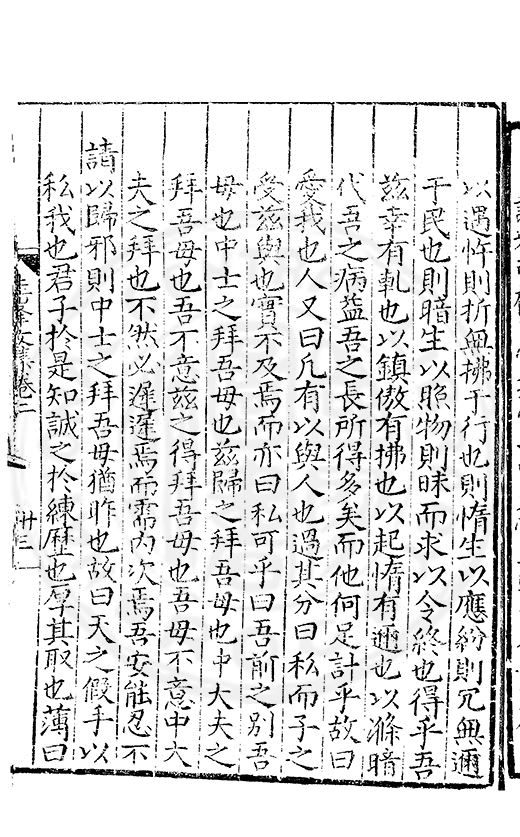 以遇忤則折無拂于行也則惰生以應紛則冗無邇
于民也則暗生以照物則昧而求以令終也得乎吾
茲幸有軋也以鎮傲有拂也以起惰有邇也以滌暗
代吾之病益吾之長所得多矣而他何足計乎故曰
愛我也人又曰凡有以與人也過其分曰私而子之
受茲與也實不及焉而亦曰私可乎曰吾前之別吾
母也中士之拜吾母也茲歸之拜吾母也中大夫之
拜吾母也吾不意茲之得拜吾母也吾母不意中大
夫之拜也不然必遲遲焉而需內次焉吾安能忍不
請以歸邪則中士之拜吾母猶昨也故曰天之假手以
私我也君子於是知誠之於練歷也厚其取也薄曰
文集卷二
卅三